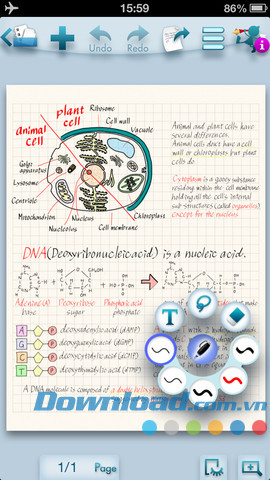 15:59
86%
Undo
Redo
plant cell
animal cell
Ribosome
Cell wall
Vacuole
Golgi apparatus
Lysosome
Centriole
Mitochondrion
Nucleus
Nucleolus
Cell membrane
Chloroplast
Animal and plant cells have
several differences.
Animal cells don't have a cell
wall or chloroplasts but plant
cells do.
Cytoplasm is a gooey substance
residing within the cell membrane
holding all the cell's internal
sub-structures (called organelles)
except for the nucleus.
DNA(Deoxyribonucleic acid) is a nucleic acid.
Adenine(A) base
Deoxyribose sugar
Phosphoric acid phosphate
A deoxyadenylic acid (dAMP)
G deoxyguanylic acid (dGMP)
C deoxycytidylic acid (dCMP)
T deoxythymidylic acid (dTMP)
A DNA molecule is composed of a double helix
T
Download.com.vn
1/1 Page